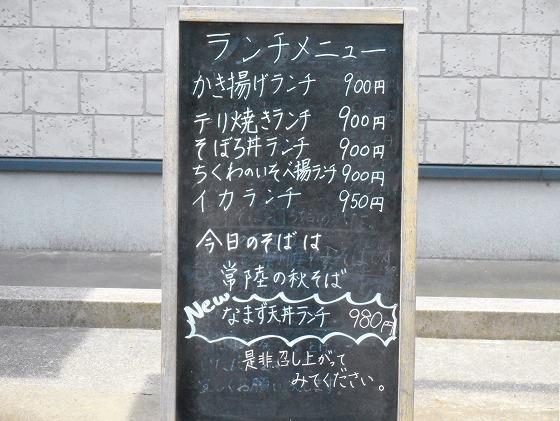 ランチメニュー
かき揚げランチ 900円
テリ焼きランチ 900円
そぼろ丼ランチ 900円
ちくわのいそべ揚ランチ 900円
イカランチ 950円
今日のそばは
常陸の秋そば
New
なまず天丼ランチ 980円
是非召し上がって
みてください。